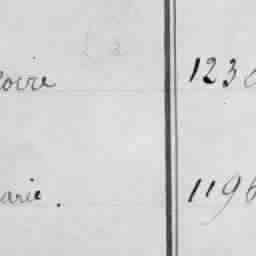 oire 1230
arie. 1196